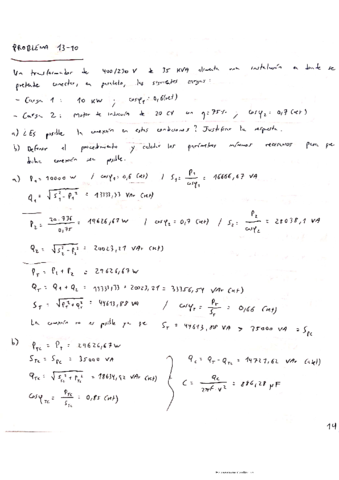 PROBLEMA 13-10
Un transformador de 400/230 V de 35 KVA alimenta una instalación en donde se
pretende conectar, en paralelo, las siguientes cargas:
- Carga 1: 10 KW ; cosφ₁ = 0,6 (ret)
- Carga 2: Motor de inducción de 20 CV η = 75% , cosφ₂ = 0,7 (ret)
a) ¿Es posible la conexión en estas condiciones? Justificar la respuesta.
b) Definir el procedimiento y calcular los parámetros mínimos necesarios para que
dicha conexión sea posible.
a) P₁ = 10000 W / cosφ₁ = 0,6 (ret) / S₁ = P₁/cosφ₁ = 16666,67 VA
Q₁ = √(S₁² - P₁²) = 13333,33 VAr (ret)
P₂ = 20·736/0,75 = 19626,67 W / cosφ₂ = 0,7 (ret) / S₂ = P₂/cosφ₂ = 28038,1 VA
Q₂ = √(S₂² - P₂²) = 20023,21 VAr (ret)
P_T = P₁ + P₂ = 29626,67 W
Q_T = Q₁ + Q₂ = 13333,33 + 20023,21 = 33356,54 VAr (ret)
S_T = √(P_T² + Q_T²) = 44613,88 VA / cosφ_T = P_T/S_T = 0,66 (ret)
La conexión no es posible ya que S_T = 44613,88 VA > 35000 VA = S_TC
b) P_TC = P_T = 29626,67 W
S_TC = S_TC = 35000 VA
Q_TC = = 18634,92 VAr (ret)
cosφ_TC = P_TC/S_TC = 0,85 (ret)
Q_C = Q_T - Q_TC = 14721,62 VAr
C = Q_C/2πf V² = 886,28 μF
14